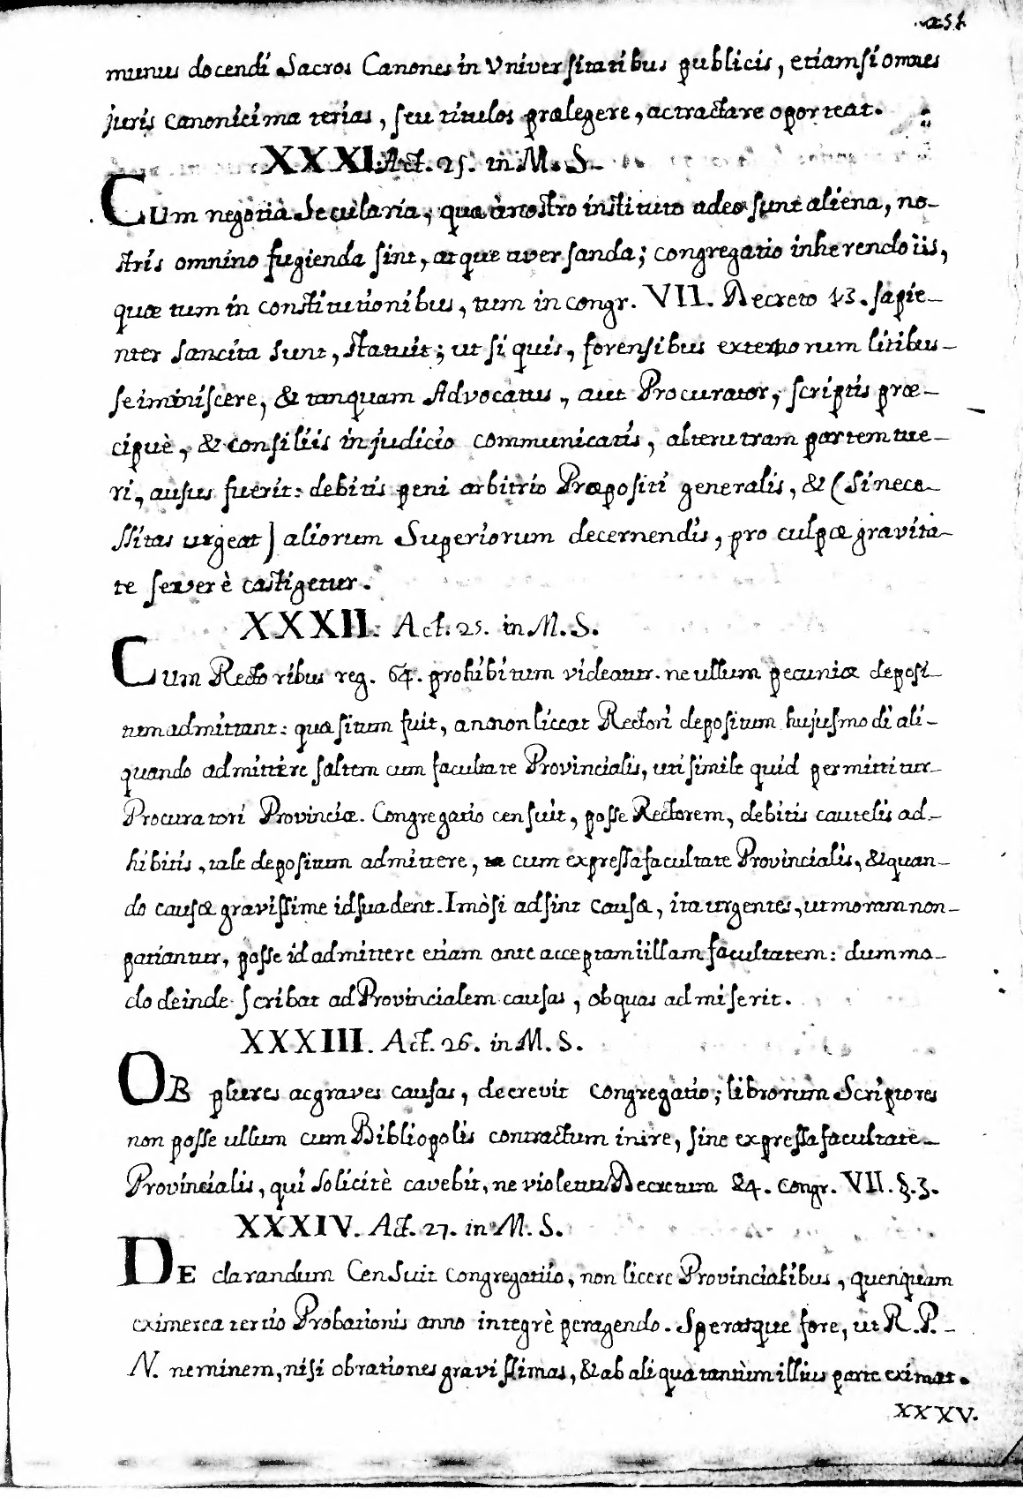 munus docendi Sacros Canones in Universitatibus publicis, etiamsi omnes
juris canonici materias, seu titulos prælegere, ac tractare oporteat.
XXXI. Act. 25. in M. S.
Cum negotia Secularia, quæ à nostro instituto adeo sunt aliena, no-
stris omnino fugienda sint, atque aversanda; congregatio inherendo iis,
quæ tum in constitutionibus, tum in congr. VII. Decreto 13. sapie-
nter sancita sunt, statuit; ut si quis, forensibus externorum litibus
se imiscere, & tanquam Advocatus, aut Procurator, scriptis præ-
cipuè, & consiliis in judicio communicatis, alterutram partem tue-
ri, ausus fuerit: debitis peni arbitrio Præpositi generalis, & (si nece-
ssitas urgeat) aliorum Superiorum decernendis, pro culpæ gravita-
te severè castigetur.
XXXII. Act. 25. in M. S.
Cum Rectoribus reg. 64. prohibitum videatur. ne ullum pecuniæ deposi-
tum admittant: quæsitum fuit, an non liceat Rectori depositum hujusmodi ali-
quando admittere saltem cum facultate Provincialis, uti simile quid permittitur
Procuratori Provinciæ. Congregatio censuit, posse Rectorem, debitis cautelis ad-
hibitis, tale depositum admittere, cum expressa facultate Provincialis, & quan-
do causæ gravissime id suadent. Imò si adsint causæ, ita urgentes, ut moram non
patiantur, posse id admittere etiam ante acceptam illam facultatem: dummo-
do deinde scribat ad Provincialem causas, ob quas admiserit.
XXXIII. Act. 26. in M. S.
OB plures ac graves causas, decrevit congregatio; librorum Scriptores
non posse ullum cum Bibliopolis contractum inire, sine expressa facultate
Provincialis, qui solicitè cavebit, ne violetur Decretum 84. congr. VII. §. 3.
XXXIV. Act. 27. in M. S.
DE clarandum Censuit congregatiio, non licere Provincialibus, quenquam
eximere a tertio Probationis anno integrè peragendo. Speratque fore, ut R. P.
N. neminem, nisi ob rationes gravissimas, & ab aliqua tantùm illius parte eximat.
XXXV.